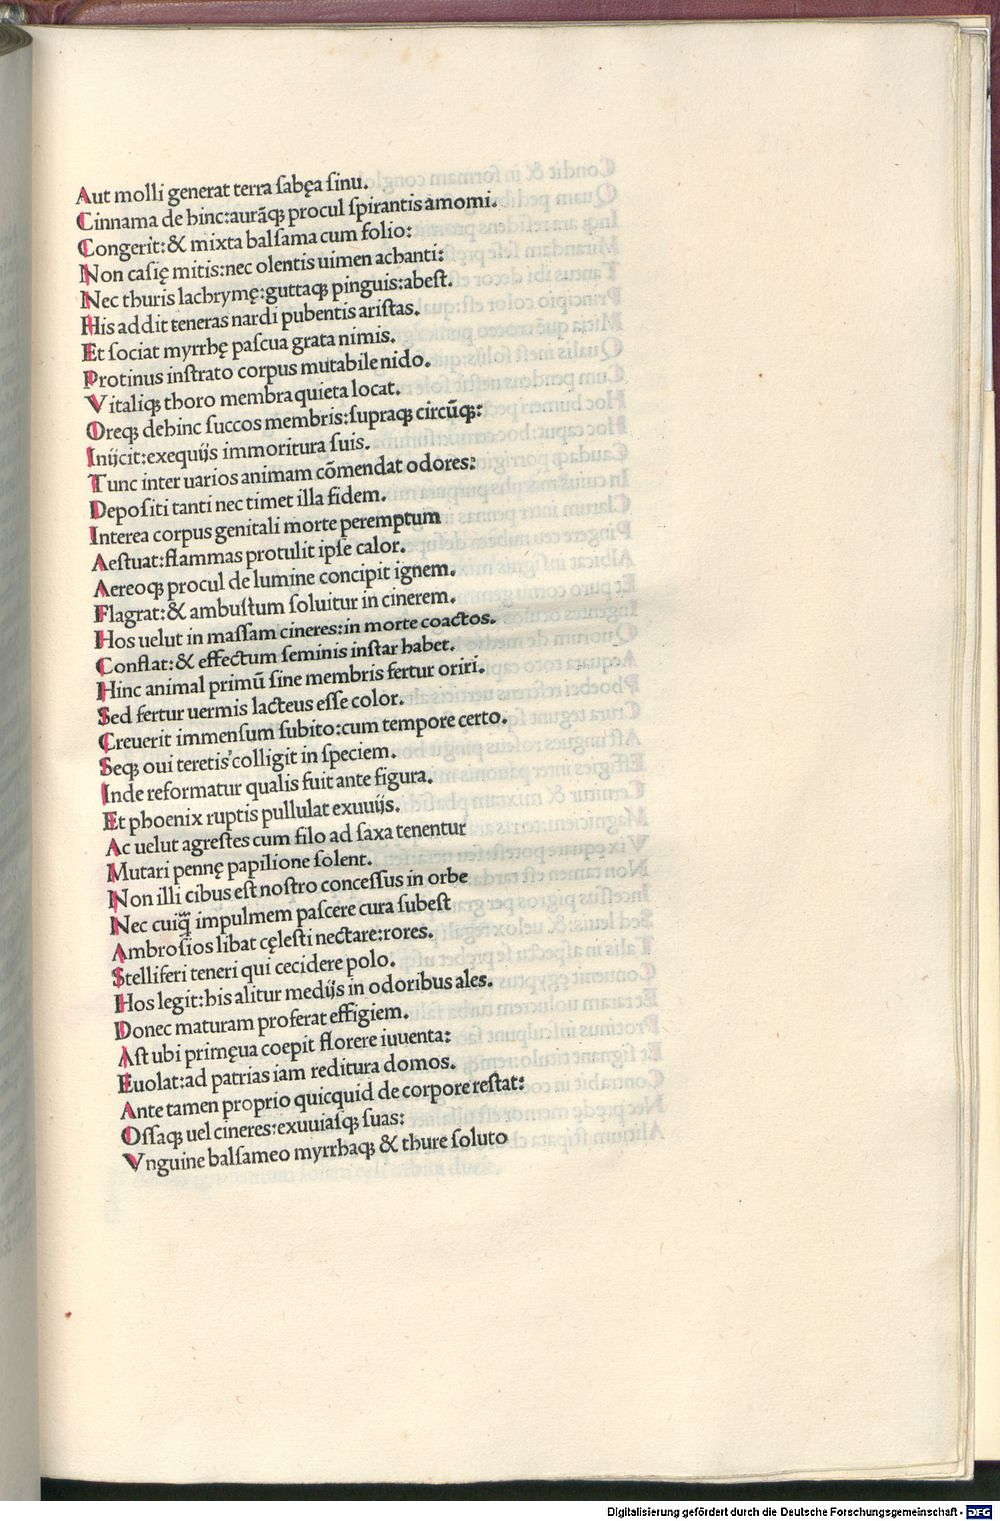 Aut molli generat terra ſabęa ſinu.
Cinnama de hinc:aurāq; procul ſpirantis amomi.
Congerit:& mixta balſama cum folio:
Non caſię mitis:nec olentis uimen achanti:
Nec thuris lachrymę:guttaq; pinguis:abeſt.
His addit teneras nardi pubentis ariſtas.
Et ſociat myrrhę paſcua grata nimis.
Protinus inſtrato corpus mutabile nido.
Vitaliq; thoro membra quieta locat.
Oreq; dehinc ſuccos membris:ſupraq; circūq;:
Inijcit:exequijs immoritura ſuis.
Tunc inter uarios animam cōmendat odores:
Depoſiti tanti nec timet illa fidem.
Interea corpus genitali morte peremptum
Aeſtuat:flammas protulit ipſe calor.
Aereoq; procul de lumine concipit ignem.
Flagrat:& ambuſtum ſoluitur in cinerem.
Hos uelut in maſſam cineres:in morte coactos.
Conflat:& effectum ſeminis inſtar habet.
Hinc animal primū ſine membris fertur oriri.
Sed fertur uermis lacteus eſſe color.
Creuerit immenſum ſubito:cum tempore certo.
Seq; oui teretis colligit in ſpeciem.
Inde reformatur qualis fuit ante figura.
Et phoenix ruptis pullulat exuuijs.
Ac uelut agreſtes cum filo ad ſaxa tenentur
Mutari pennę papilione ſolent.
Non illi cibus eſt noſtro conceſſus in orbe
Nec cuiq̄ impulmem paſcere cura ſubeſt
Ambroſios libat cęleſti nectare:rores.
Stelliferi teneri qui cecidere polo.
Hos legit:his alitur medijs in odoribus ales.
Donec maturam proferat effigiem.
Aſt ubi primęua coepit florere iuuenta:
Euolat:ad patrias iam reditura domos.
Ante tamen proprio quicquid de corpore reſtat:
Oſſaq; uel cineres:exuuiaſq; ſuas:
Vnguine balſameo myrrhaq; & thure ſoluto
Digitalisierung gefördert durch die Deutsche Forschungsgemeinschaft - DFG